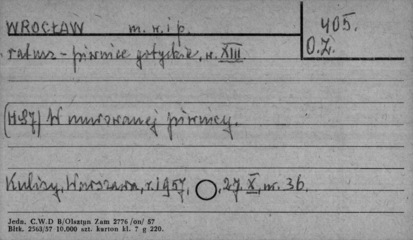 WROCŁAW m. w. i p. 405.
O.Z.
ratusz - piwnice gotyckie, w. XIII.
W murowanej piwnicy.
Kulisy, Warszawa, r. 1957, 27. X, nr. 36.
Jedn. C.W.D B/Olsztyn Zam 2776 /on/ 57
Bltk. 2563/57 10.000 szt. karton kl. 7 g 220.